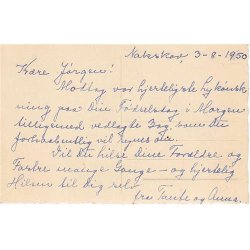 Nakskov 3-8-1950
Kære Jørgen!
Modtag vor hjerteligste Lykønsk-
ning paa din Fødselsdag i Morgen
ledsaget med vedlagte Bog, som Du
forhaabentlig vil synes om.
Vil Du hilse dine Forældre og
Farbror mange Gange - og hjertelig
Hilsen til dig selv
fra Tante og Anna.